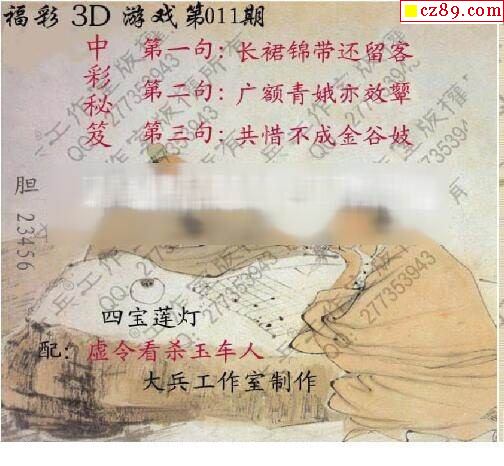 福彩 3D 游戏第011期
cz89.com
中彩秘笈
第一句:长裙锦带还留客
第二句:广额青娥亦效颦
第三句:共惜不成金谷妓
胆 23456
四宝莲灯
配:虚令看杀玉车人
大兵工作室制作
大兵工作室版權所有
QQ:277353943